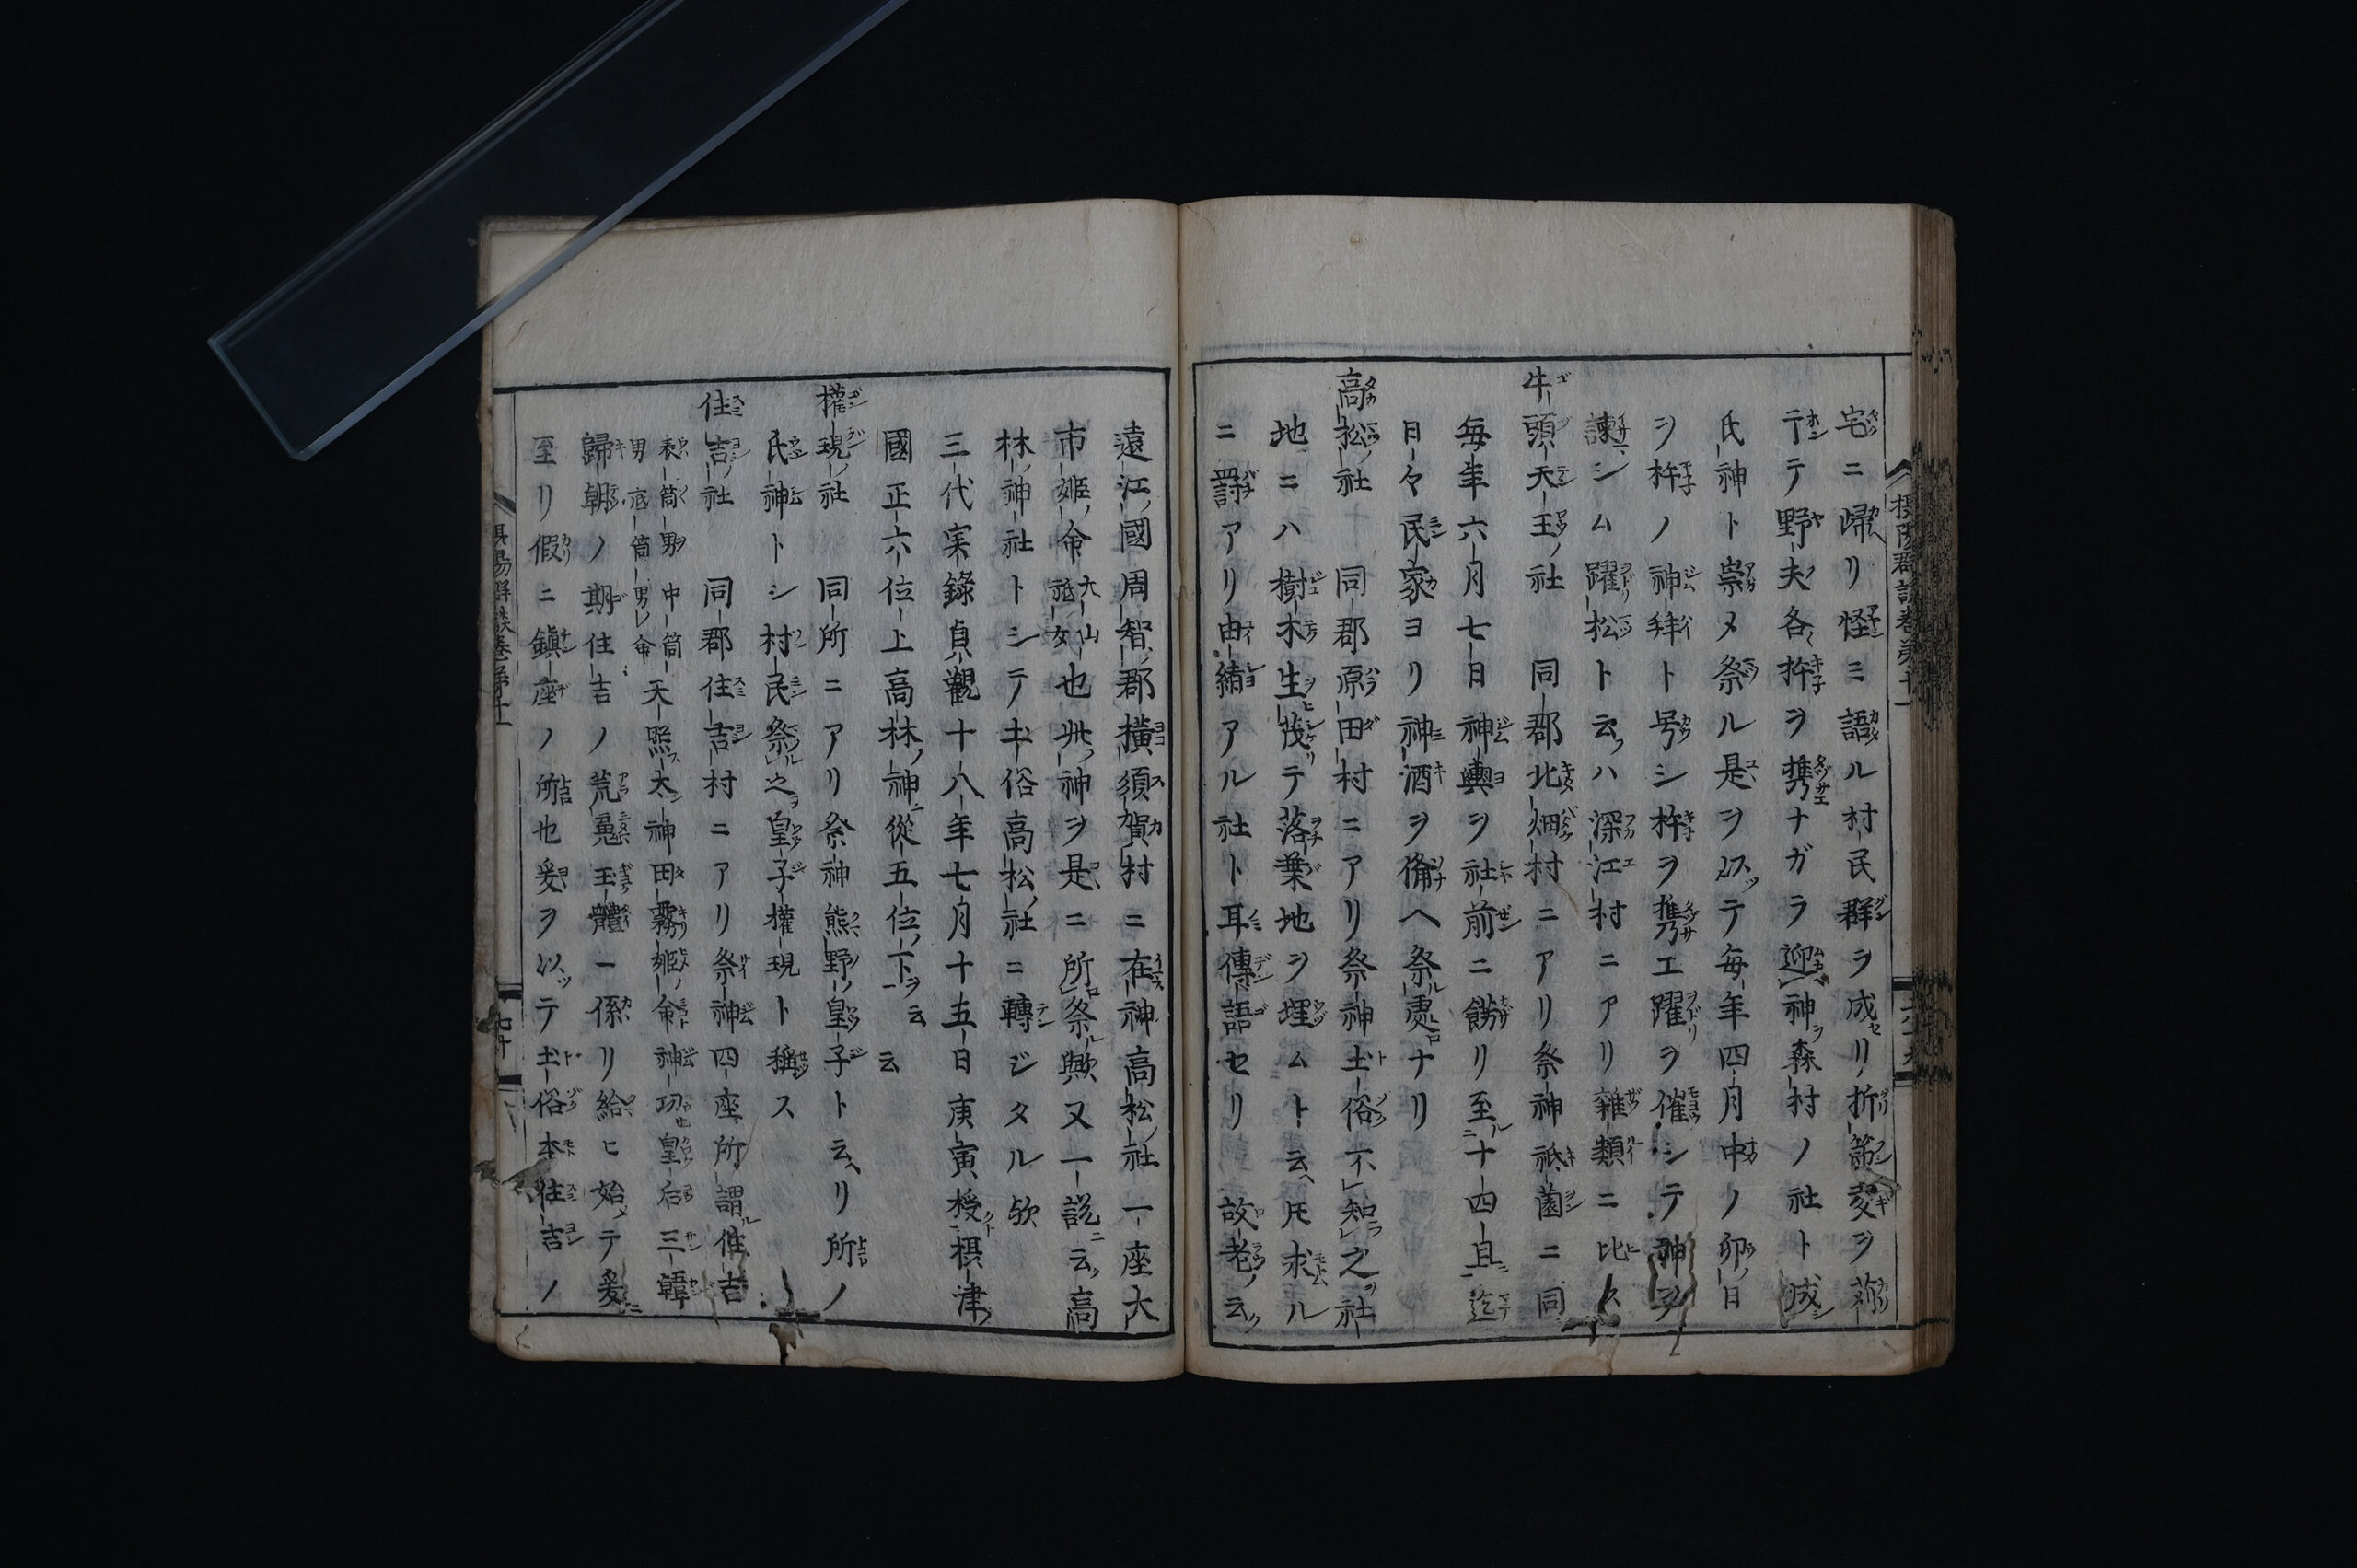 宅ニ帰リ怪ミ語ル村民群ヲ成リ折節麦ヲ蒔
テ野夫各杵ヲ携ナガラ迎神森村ノ社ト成
氏神ト崇メ祭ル是ヲ以テ毎年四月中ノ卯日
ヲ杵ノ神拜ト号シ杵ヲ携エ躍ヲ催シテ神ヲ
諫シム躍松ト云ハ深江村ニアリ雜類ニ比ス
牛頭天王社 同郡北畑村ニアリ祭神祇園ニ同
毎年六月七日神輿ヲ社前ニ餝リ至十四旦迄
日々民家ヨリ神酒ヲ備ヘ祭ナリ
高松社 同郡原田村ニアリ祭神土俗不知之社
地ニハ樹木生茂テ落葉地ヲ埋ムト云トモ求ル
ニ罸アリ由緒アル社ト耳傳語セリ故老ノ云
遠江國周智郡横須賀村ニ在神高松社一座大
市姫命大山祗女也此神ヲ是ニ所祭歟又一説云高
林神社トシテ土俗高松社ニ轉ジタル欤
三代実録貞觀十八年七月十五日庚寅授摂津
國正六位上高林神從五位下云云
權現社 同所ニアリ祭神熊野皇子ト云リ所ノ
氏神トシ村民祭之皇子權現ト稱ス
住吉社 同郡住吉村ニアリ祭神四座所謂住吉
表筒男 中筒男 底筒男命 天照太神田霧姫命神功皇后三韓
歸朝ノ期住吉ノ荒䰟玉體ニ係リ給ヒ始テ爰
至リ假ニ鎭座ノ所也爰ヲ以テ土俗本住吉ノ